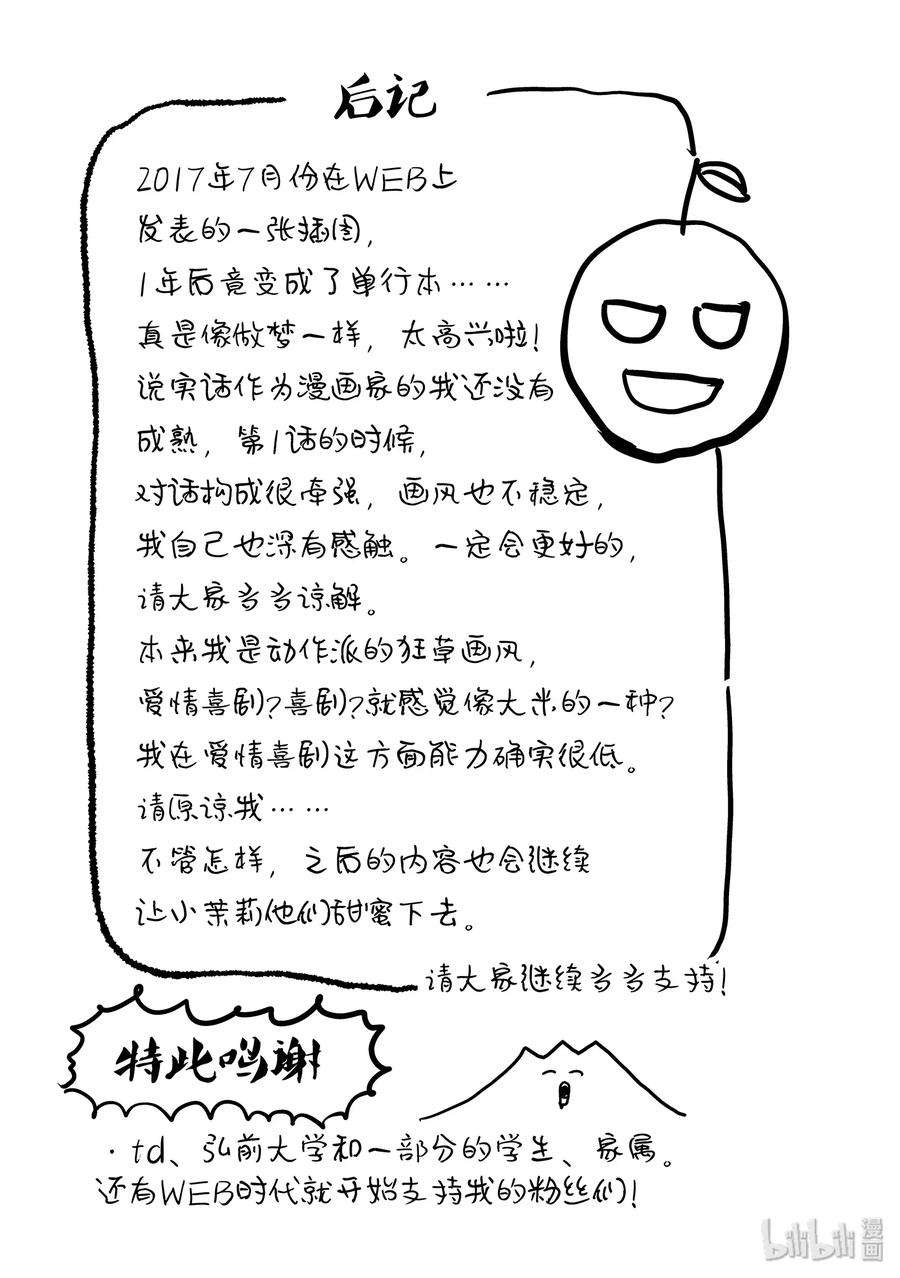 后记
2017年7月份在WEB上
发表的一张插图,
1年后竟变成了单行本……
真是像做梦一样, 太高兴啦!
说实话作为漫画家的我还没有
成熟, 第1话的时候,
对话构成很牵强, 画风也不稳定,
我自己也深有感触。一定会更好的,
请大家多多谅解。
本来我是动作派的狂草画风,
爱情喜剧?喜剧?就感觉像大米的一种?
我在爱情喜剧这方面能力确实很低。
请原谅我……
不管怎样, 之后的内容也会继续
让小茉莉他们甜蜜下去。
请大家继续多多支持!
特此鸣谢
·td、弘前大学和一部分的学生、家属。
还有WEB时代就开始支持我的粉丝们!
bilibili 漫画